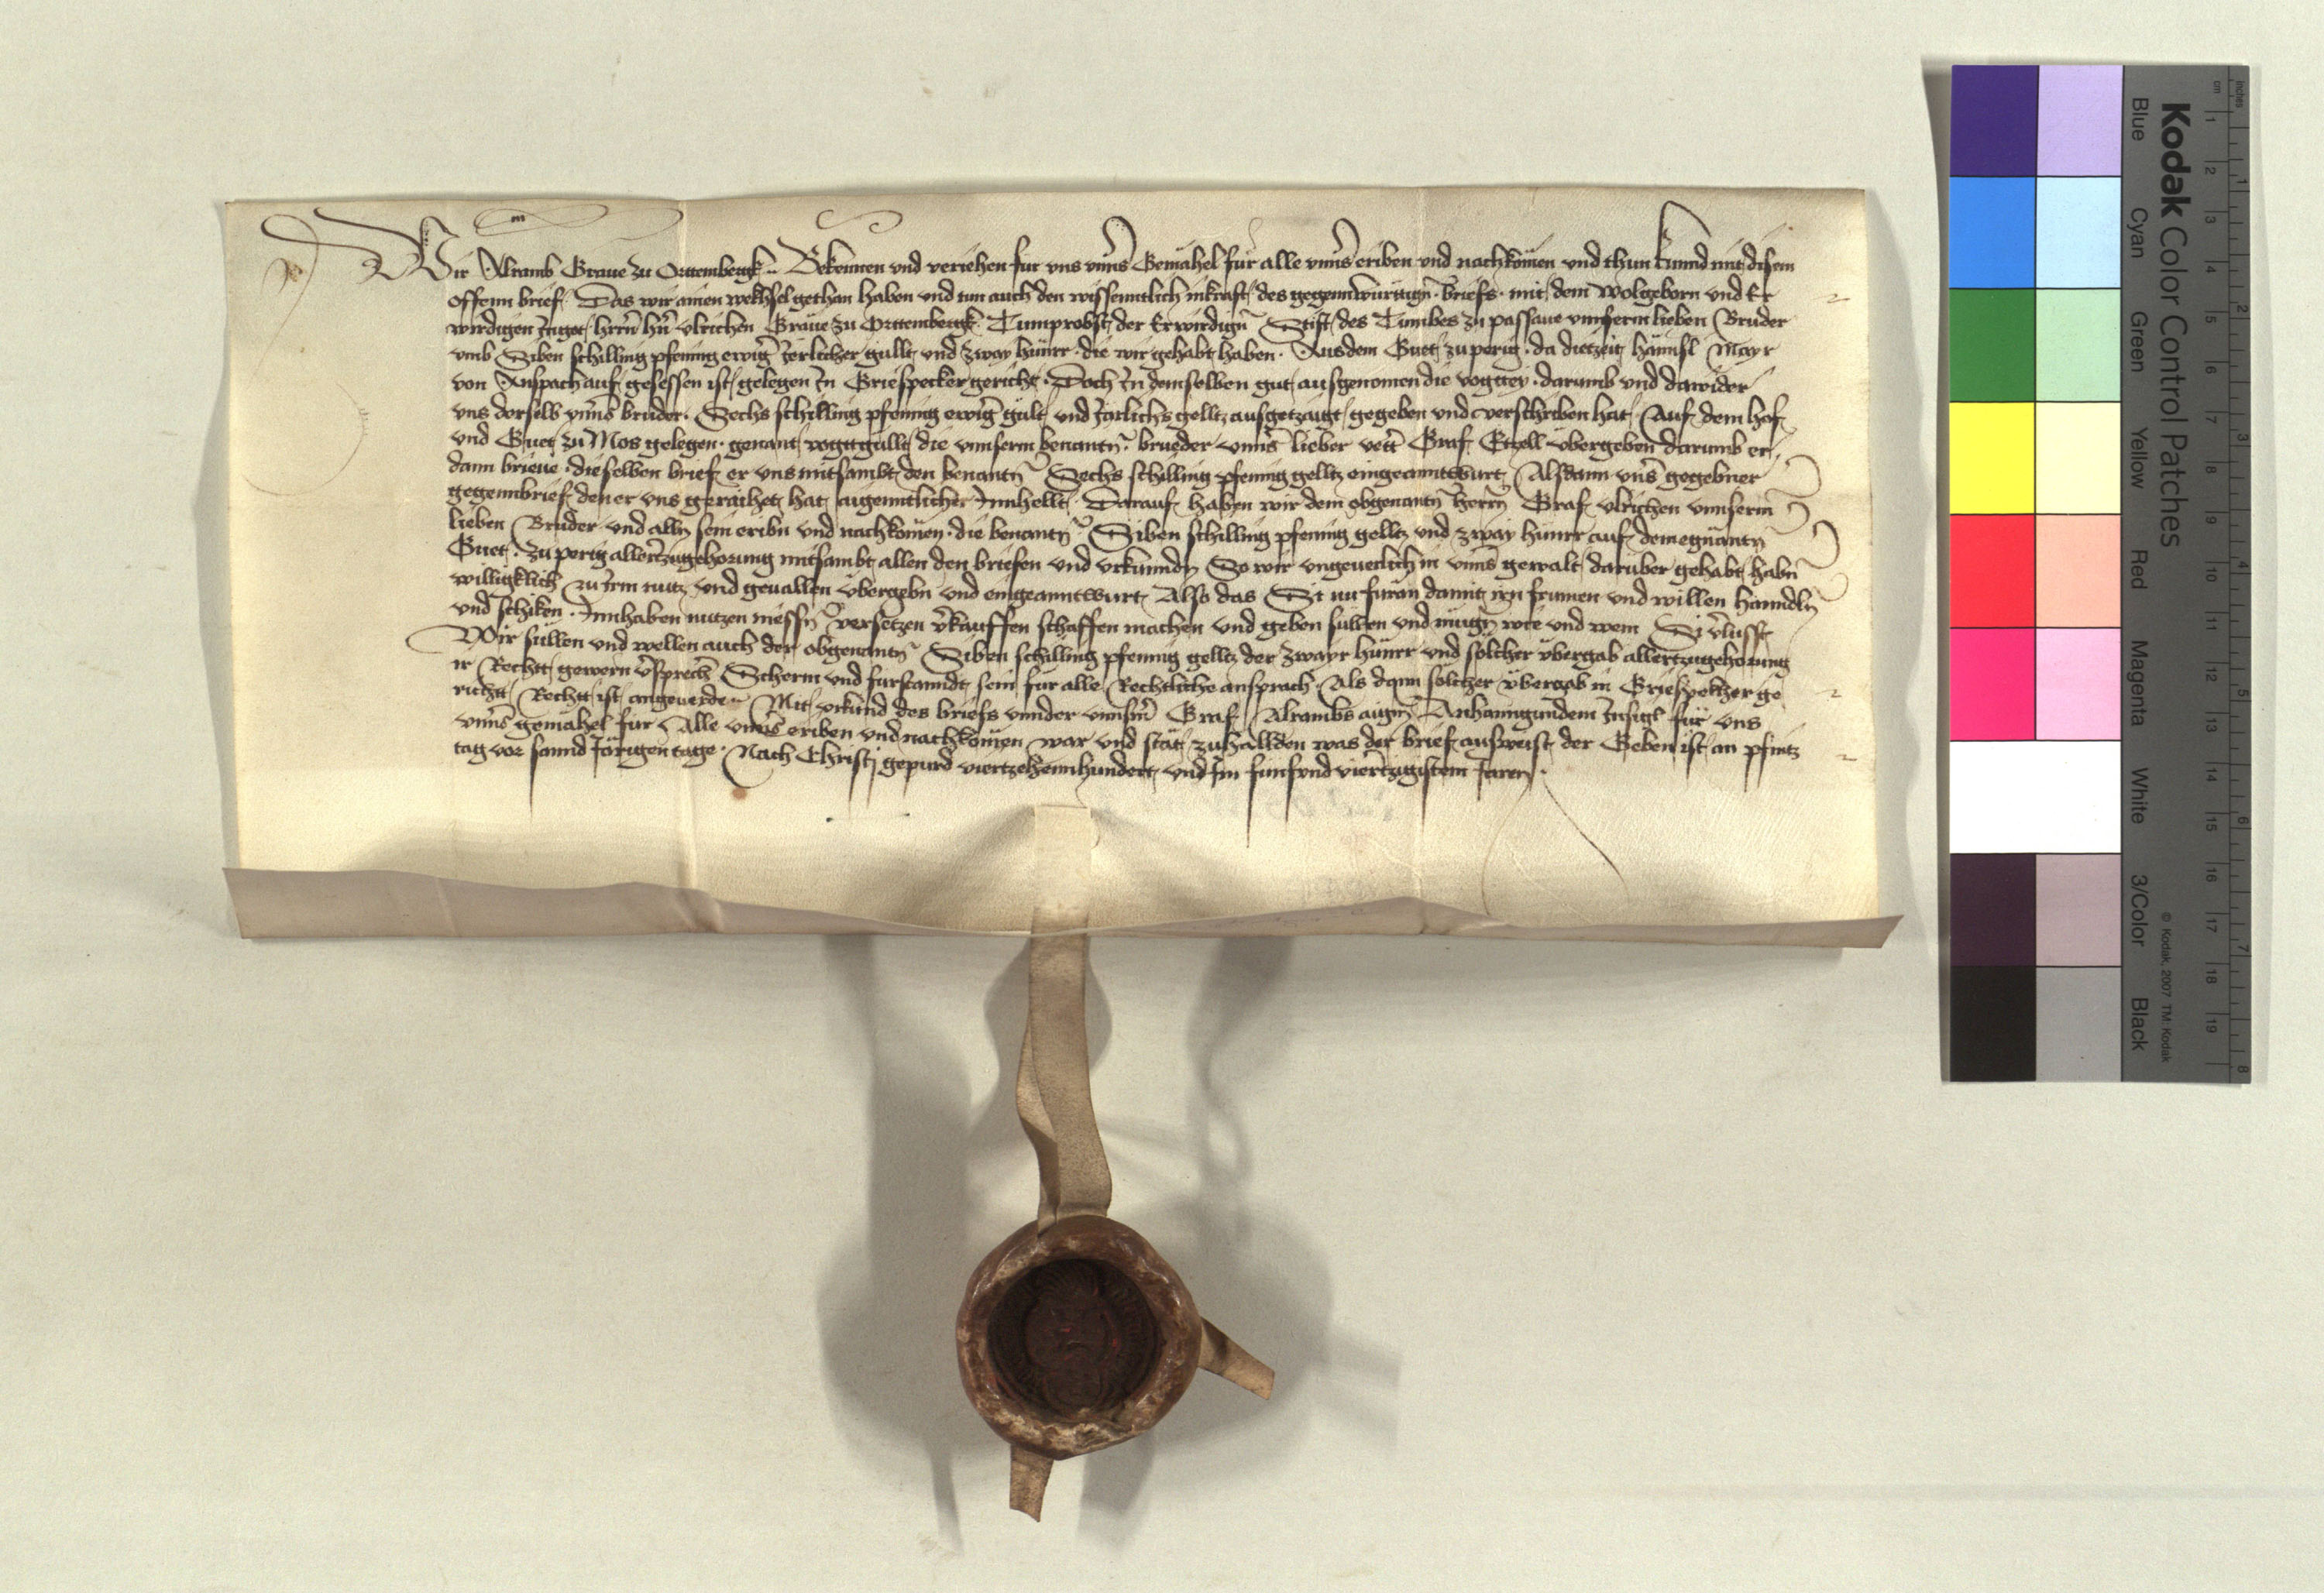 Wir Alramb Graue zu Orttemberg Bekennen vnd veriehen fur vns vnnsr Gemahel fur alle vnnsr eriben vnd nachkomen vnd thun kunnd mit disem
offenn brief Das wir ainen wechsel gethan haben vnd tun auch den wissenntlich inkraft des gegennwurtign briefs mit dem wolgeborn vnd Er
wirdigen hrrn hrn vlrichen Graue zu Orttemberg Tumprobst der Erwirdign Stift des Tumbes zu passaue vnnserm lieben Bruder
vmb Siben schilling pfening ewigr Jerlicher gullt vnd zway hunrr die wir gehabt haben Aus dem Guet zu perig da dietzeit hannsl Mayr
von Anspach auf gesessen ist gelegen In Griespecker gericht Doch In demselben gut ausgenomen die vogttey darumb vnd dawider
vns derselb vnnsr bruder Sechs schilling pfening ewigr gult vnd Jarlichs gelltz ausgetzaigt gegeben vnd verschriben hat Auf dem hof
vnd Guet zu Mos gelegen genant vogttgullt die vnnserm benantn brueder vnnsr lieber vettr Graf Etzell vbergeben darumb er
dann brieue dieselben brief er vns mitsambt den benantn Sechs schilling pfening gelltz eingeanntwurt Alsdann vnsr gegebner
gegennbrief den er vns geraihet hat aigenntlicher Innhellt Darauf haben wir dem obgenantn herrn Graf vlrichen vnnserm
lieben Bruder vnd alln sein eribn vnd nachkomen die benantn Siben schilling pfening gelltz vnd zway hunrr auf dem egnantn
Guet zu perig allertzugehorung mitsambt allen den briefen vnd vrkunndn So wir vngeuerlich in vnnsr gewalt daruber gehabt habn
willigklich zu Irm nutz vnd geuallen vbergebn vnd eingeanntwurt Also das Si nu furan damit irn frumen vnd willen hanndln
vnd schiken Innhaben nutzen niessn versetzen vrkauffen schaffen machen vnd geben sullen vnd mugn wie vnd wem Si vrlusst
Wir sullen vnd wellen auch der obgenantn Siben schilling pfening gelltz der zwayr hunrr vnd solcher vbergab allertzugehorung
ir Rechtt gewern vrsprech Scherm vnd furstanndt sein fur alle Rechtliche ansprach Als dann solicher vbergab in Griespekher ge
richtt Rechtt ist angeuerde Mit vrkund des briefs vnnder vnnsrm Graf Alrambs aign Anhanngundem Insigl fur vns
vnnsr gemahel fur Alle vnnsr eriben vnd nachkomen war vnd stat zuhallden was der brief ausweist der Geben ist an pfintz
tag vor sannd Jorigen tage Nach Christj gepurd viertzehennhundert vnd Im funfvnd viertzigistem Jaren
Kodak Color Control Patches
Blue Cyan Green Yellow Red Magenta White 3/Color Black
© Kodak, 2007 TM: Kodak
cm 1 2 3 4 5 6 7 8 9 10 11 12 13 14 15 16 17 18 19
inches 1 2 3 4 5 6 7 8